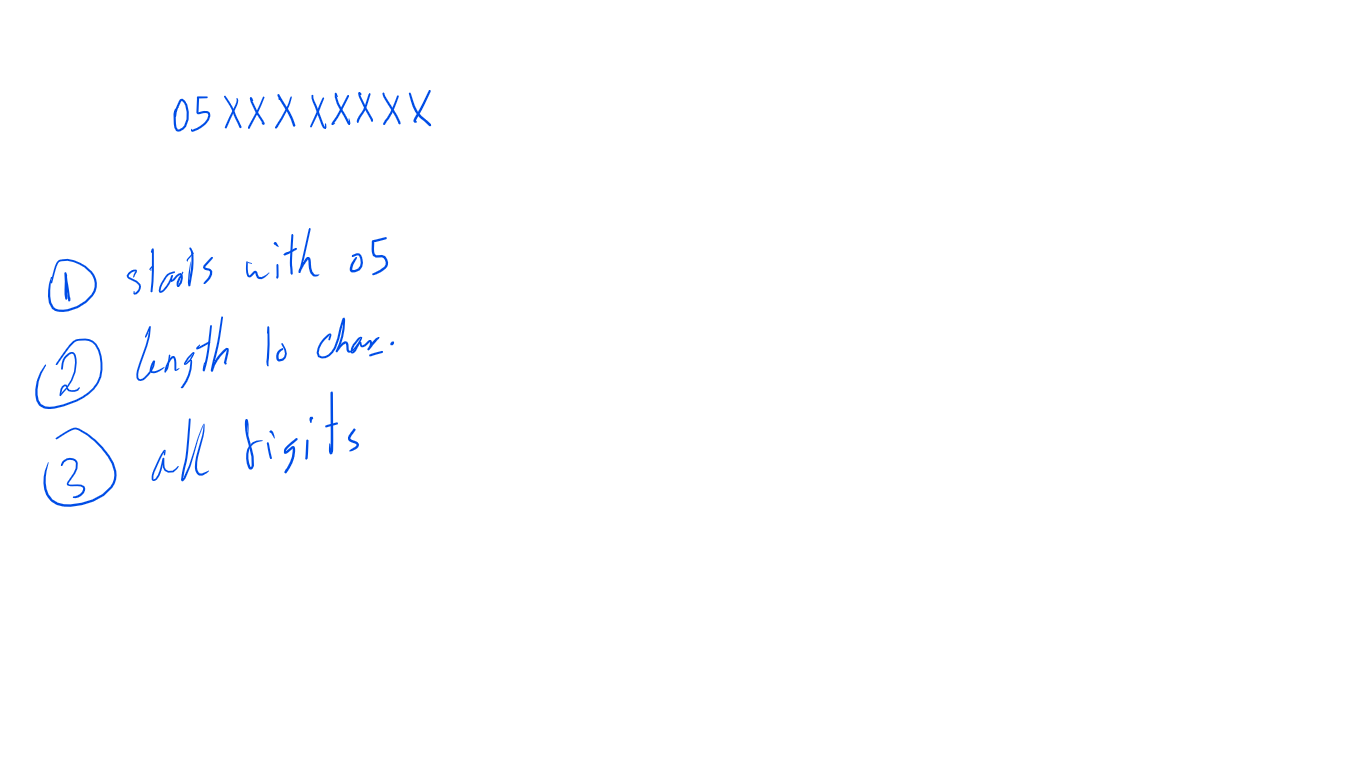 05XXXXXXXX
1 starts with 05
2 length 10 char.
3 all digits